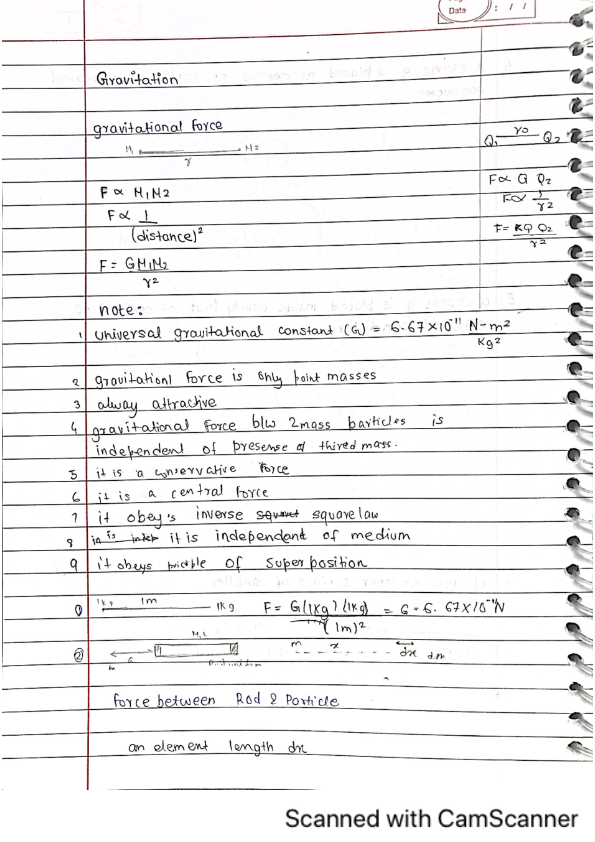 Data : / /
Gravitation
gravitational force
M1 M2
r
Q1 r0 Q2
F ∝ M1M2
F ∝ Q Q2
F ∝ 1 / (distance)²
F ∝ 1 / r2
F = GM1M2 / r2
F = KQ Q2 / r2
note:
1 universal gravitational constant (G) = 6.67 × 10⁻¹¹ N-m² / Kg2
2 gravitationl force is only point masses
3 alway attractive
4 gravitational force b/w 2mass particles is
independent of presense of thired mass.
5 it is a conservative force
6 it is a central force
7 it obey's inverse square law
8 it is independent of medium
9 it obeys of Super position
① 1kg 1m 1Kg F = G(1Kg)(1Kg) / (1m)2 = 6.67×10⁻¹¹N
② M,L m x dx dm
force between Rod & Particle
an element length dx
Scanned with CamScanner